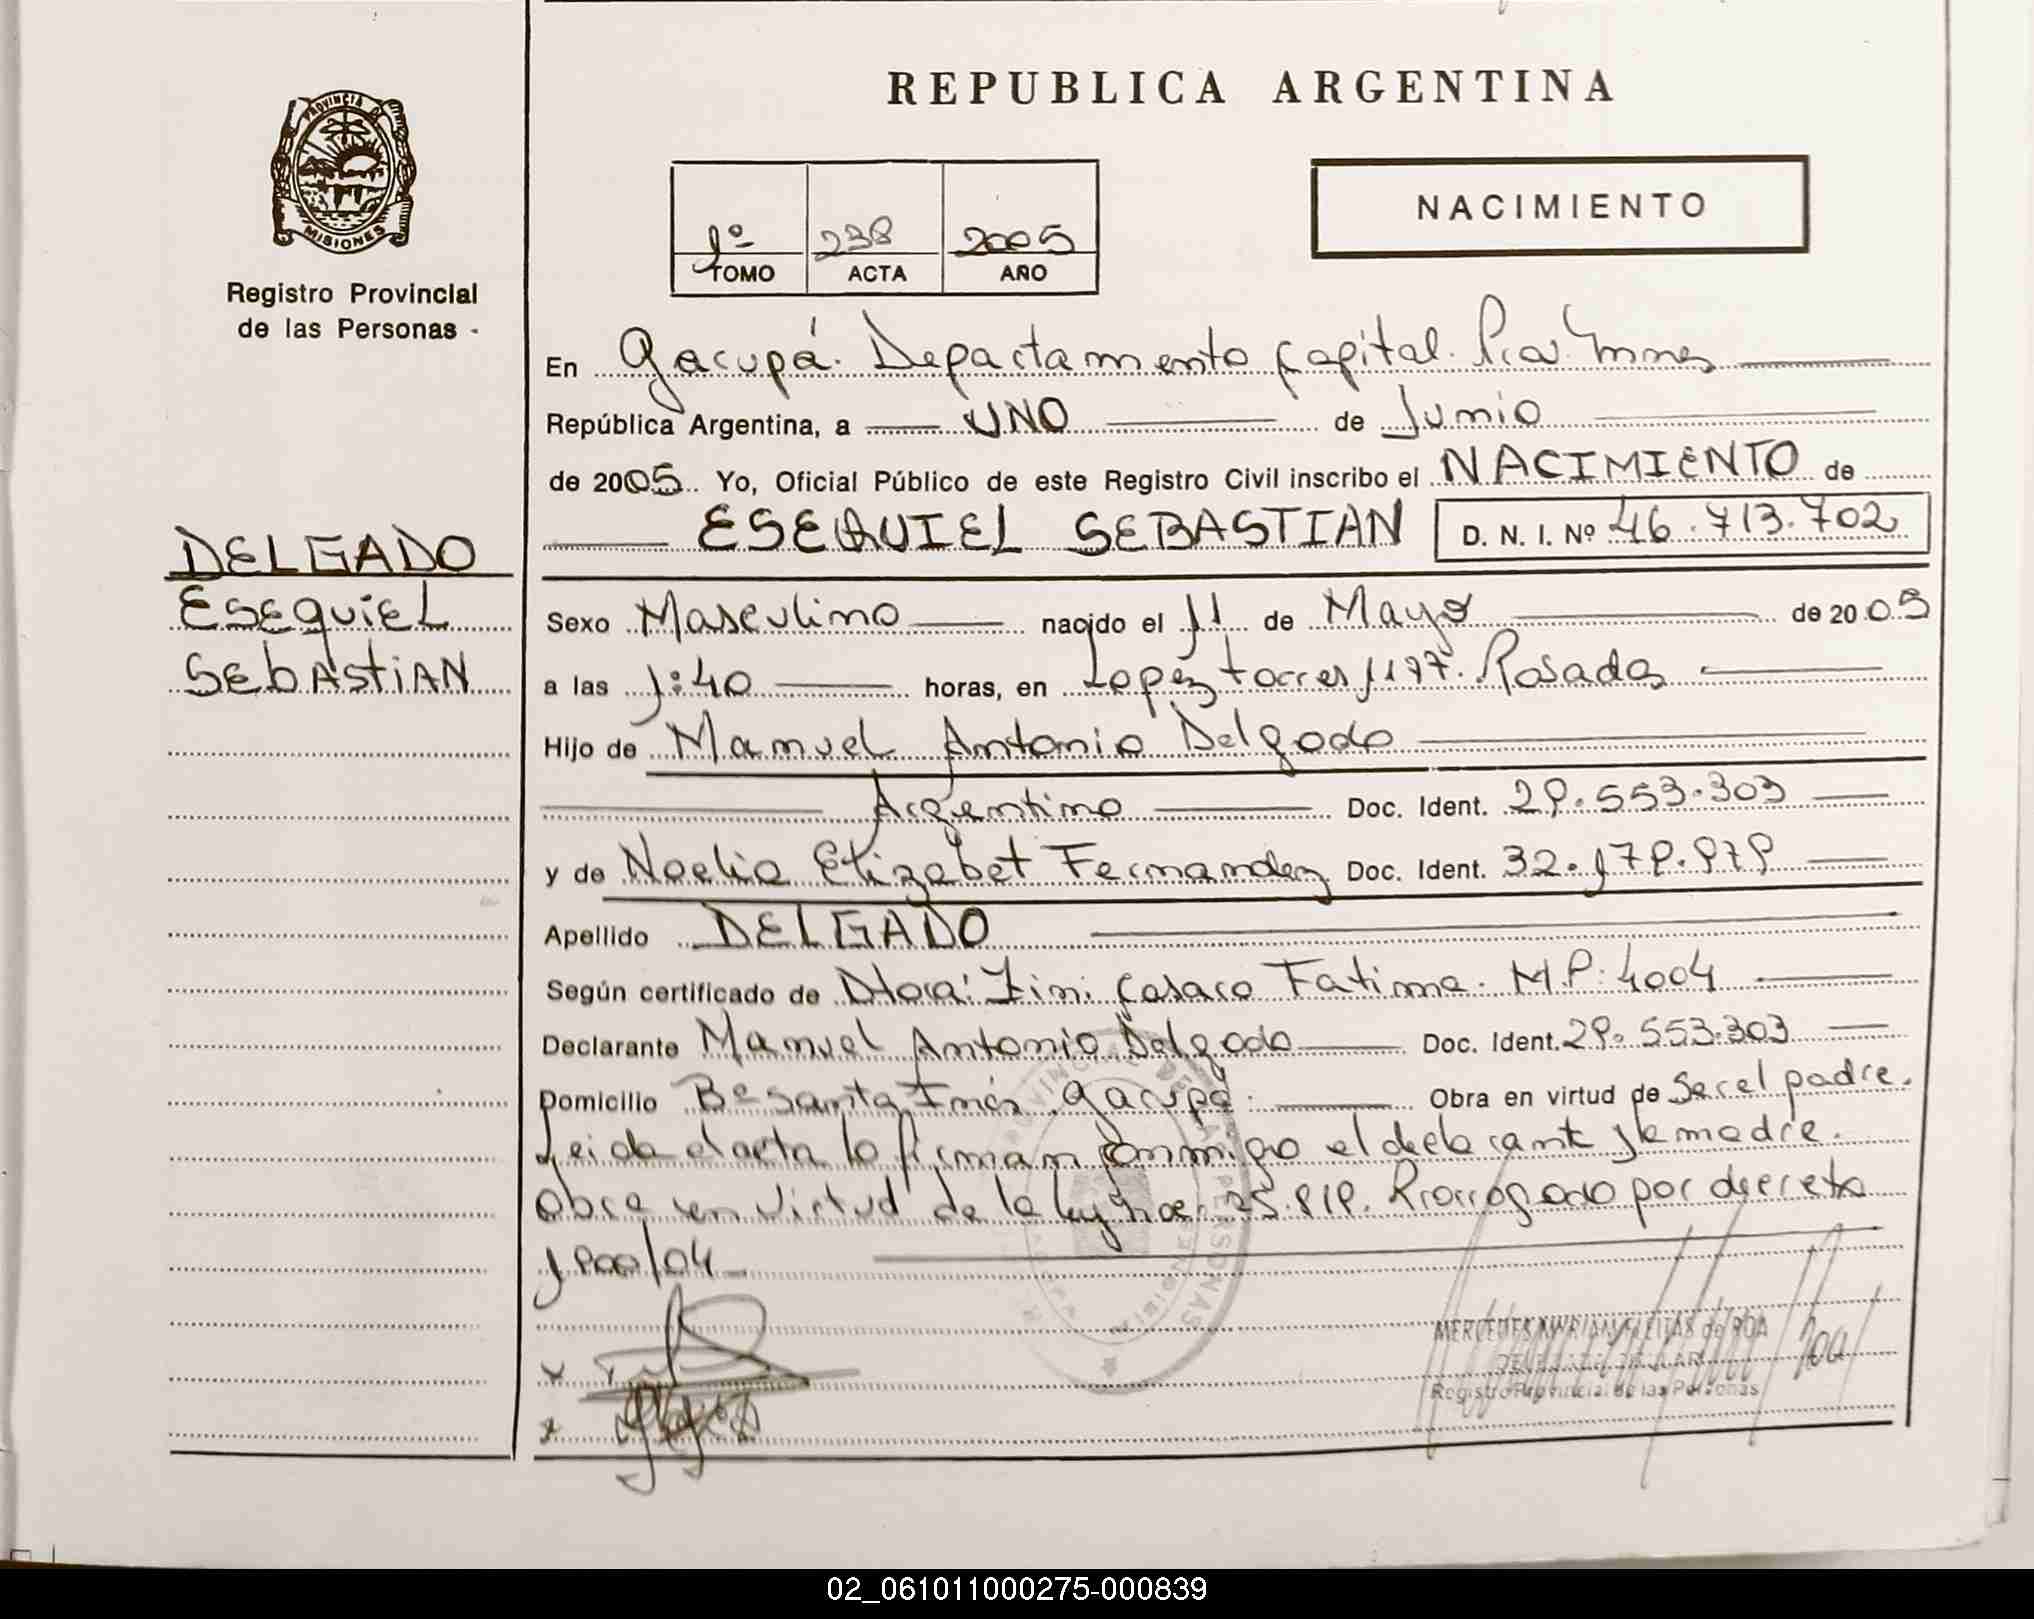 REPUBLICA ARGENTINA
PROVINCIA DE
MISIONES
Registro Provincial
de las Personas -
1º 238 2005
TOMO ACTA AÑO
NACIMIENTO
En Garupá. Departamento Capital. Pcia. Mnes
República Argentina, a UNO de Junio
de 2005 Yo, Oficial Público de este Registro Civil inscribo el NACIMIENTO de
ESEQUIEL SEBASTIAN D. N. I. Nº 46.713.702
DELGADO
Esequiel
Sebastian
Sexo Masculino nacido el 11 de Mayo de 2005
a las 1:40 horas, en Lopez torres 1177. Posadas
Hijo de Manuel Antonio Delgado
Argentino Doc. Ident. 29.553.303
y de Noelia Elizabet Fernandez Doc. Ident. 32.179.979
Apellido DELGADO
Según certificado de Dtora: Fatima. M.P: 4004
Declarante Manuel Antonio Delgado Doc. Ident. 29.553.303
Domicilio Bº Santa Inés Garupá. Obra en virtud de Ser el padre.
Leida el acta lo firman conmigo el declarant y la madre.
Obra en virtud de la ley 25.819. Prorrogado por decreto
1900/04
MERCEDES MYRIAN FLEITAS de ROA
Registro Provincial de las Personas
02_061011000275-000839